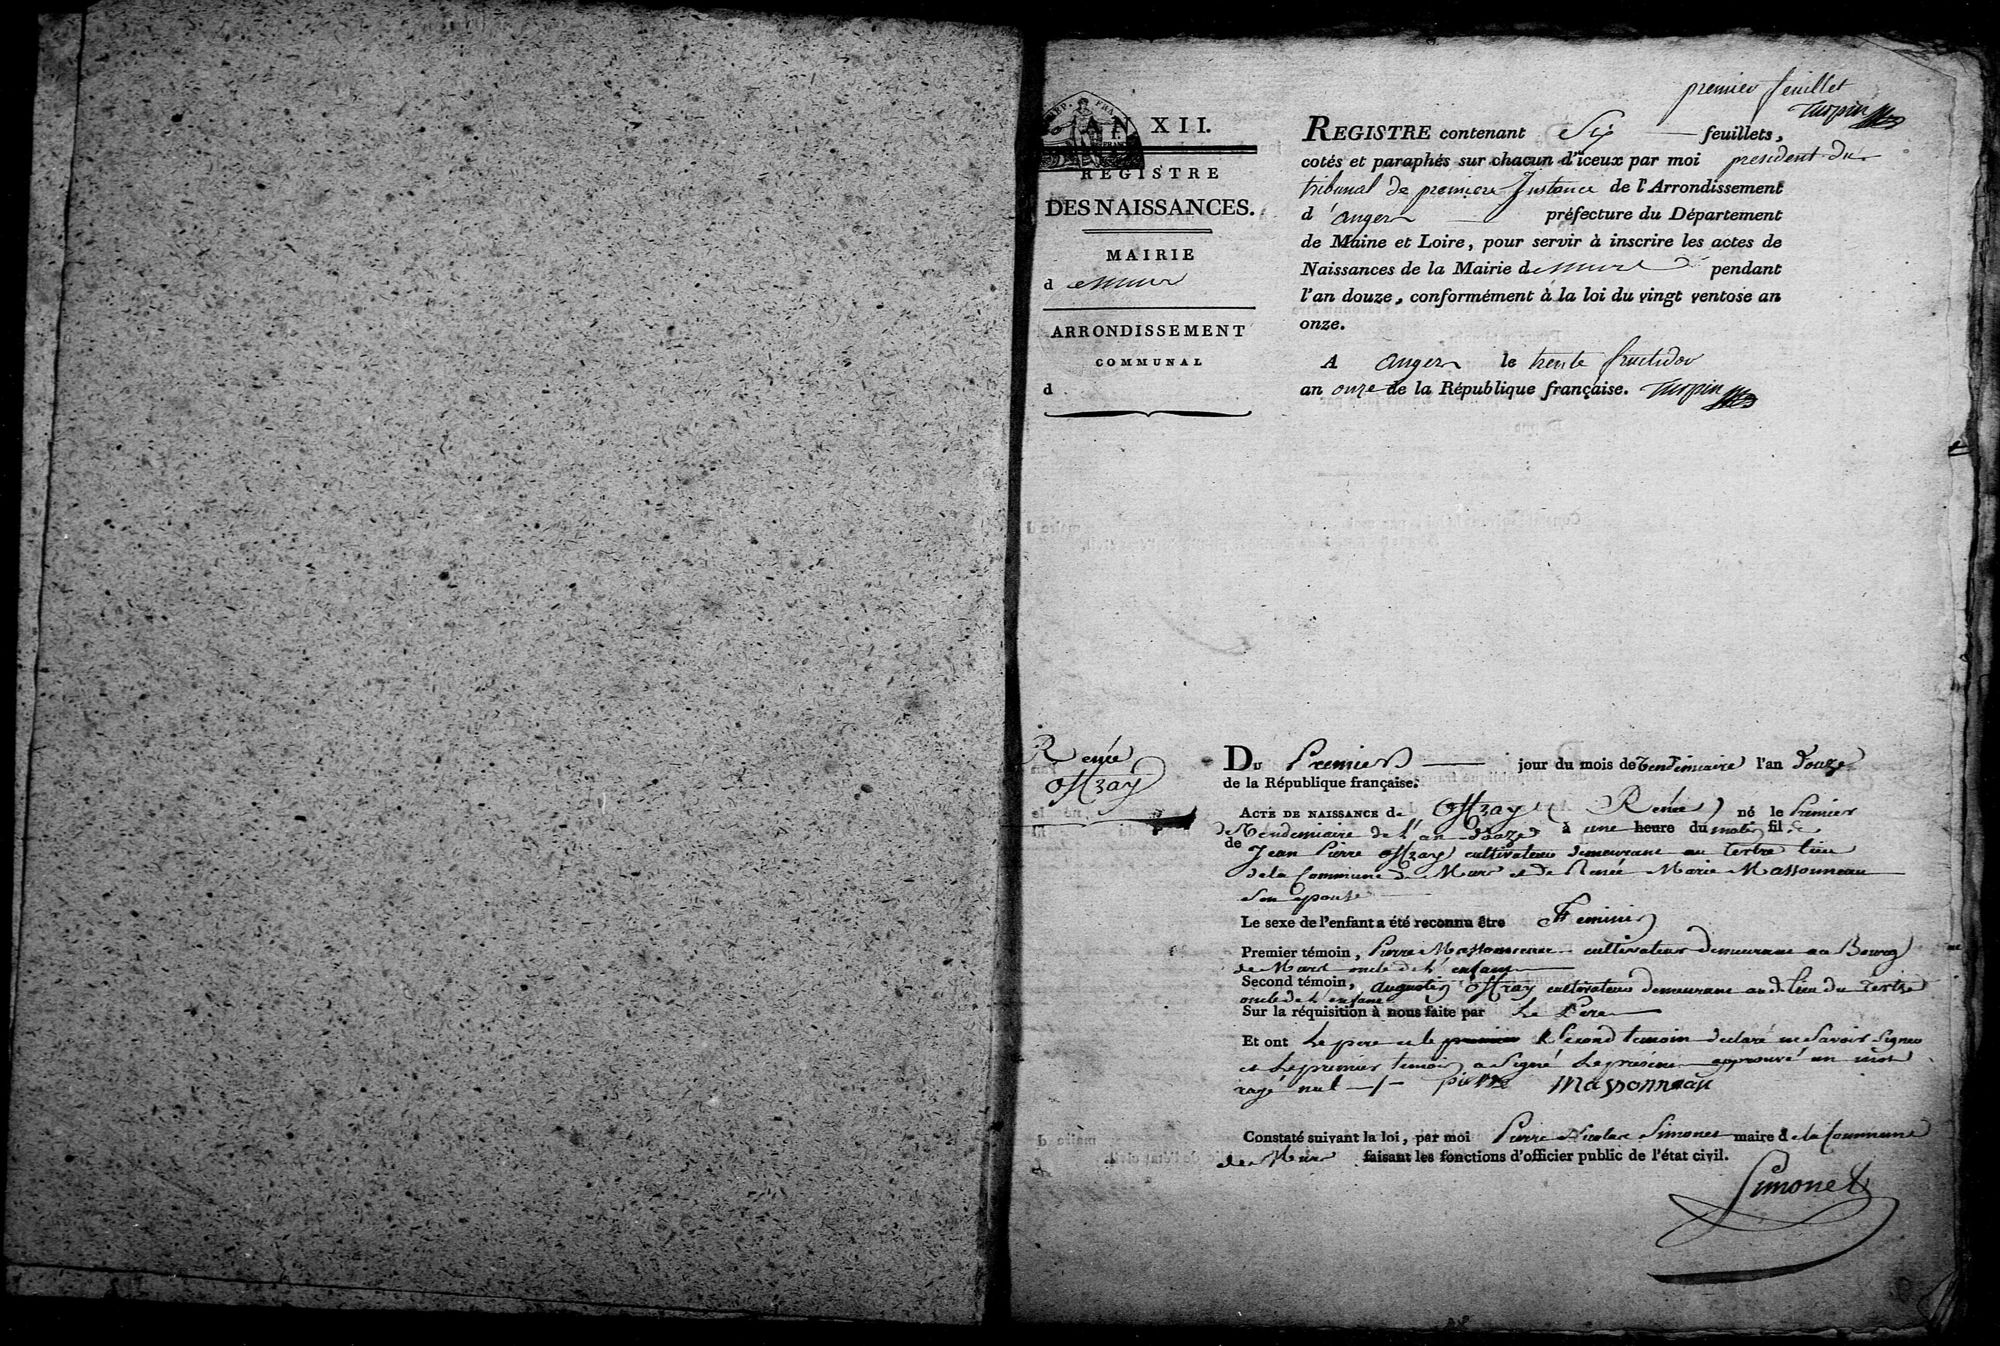 premier feuillet
Turpin
AN XII.
REGISTRE
DES NAISSANCES.
MAIRIE
d e Murs
ARRONDISSEMENT
COMMUNAL
d
REGISTRE contenant Six feuillets,
cotés et paraphés sur chacun d'iceux par moi president du
tribunal de premiere Instance de l'Arrondissement
d 'angers préfecture du Département
de Maine et Loire, pour servir à inscrire les actes de
Naissances de la Mairie de Murs pendant
l'an douze, conformément à la loi du vingt ventose an
onze.
A angers le trente fructidor
an onze de la République française. Turpin
Renée
Offray
DU Premier jour du mois de Vendemiaire l'an Douze
de la République française.
ACTE DE NAISSANCE de Offray (Renée) né le Premier
de Vendemiaire de l'an douze à une heure du matin fille
de Jean Pierre Offray cultivateur demeurant au Tertre lieu
de la Commune de Murs et de Renée Marie Massonneau
son epouse
Le sexe de l'enfant a été reconnu être Feminin
Premier témoin, Pierre Massonneau cultivateur demeurant au Bourg
de Murs oncle de l'enfant
Second témoin, augustin Offray cultivateur demeurant au d. lieu du Tertre
oncle de l'enfant
Sur la réquisition à nous faite par Le Pere
Et ont Le pere et le premier Second temoin declaré ne Savoir Signer
et Le premier temoin a Signé Le present approuvé un mot
rayé nul pierre Massonneau
Constaté suivant la loi, par moi Pierre Nicolas Simonet maire de la Commune
de Murs faisant les fonctions d'officier public de l'état civil.
Simonet